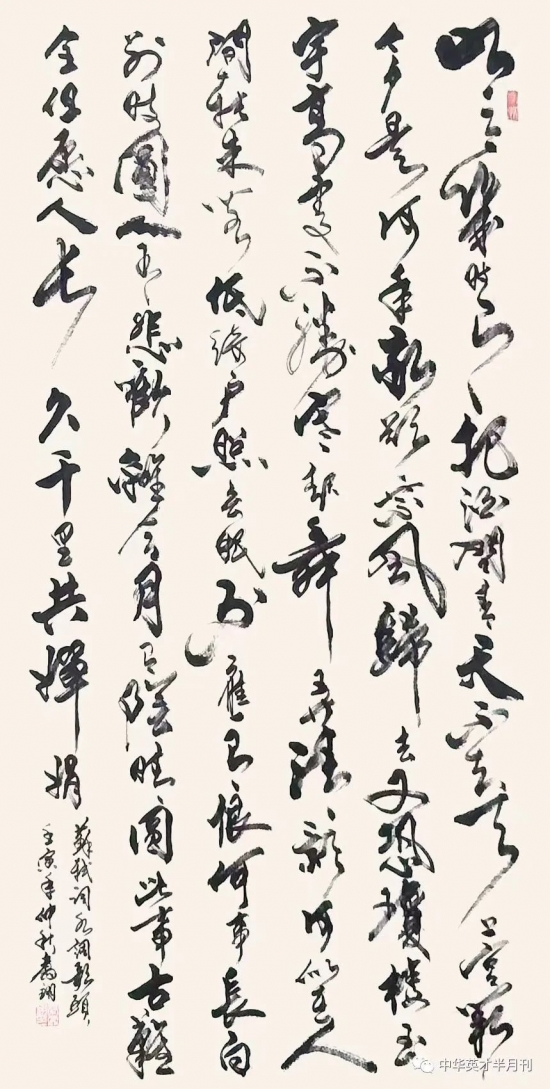 明月幾時有把酒問青天不知天上宮闕
今夕是何年我欲乘風歸去又恐瓊樓玉
宇高處不勝寒起舞弄清影何似在人
間轉朱閣低綺戶照無眠不應有恨何事長向
別時圓人有悲歡離合月有陰晴圓此事古難
全但願人長久千里共嬋娟
蘇軾詞水調歌頭
壬寅年仲秋
中华英才半月刊